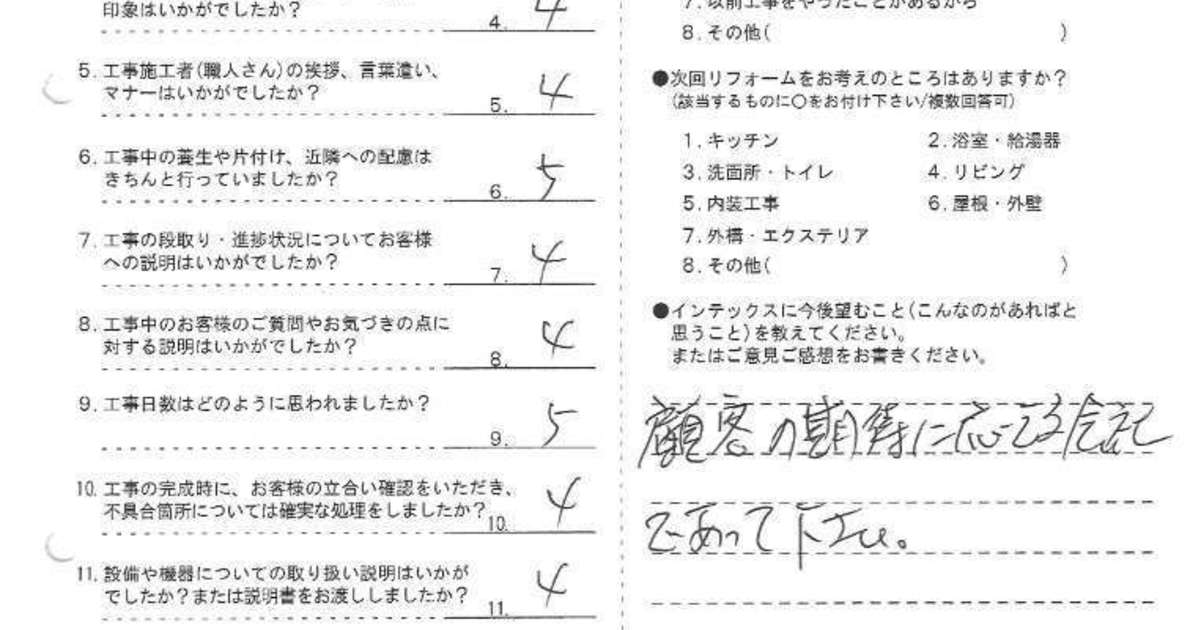 印象はいかがでしたか？
4. 4
5. 工事施工者(職人さん)の挨拶、言葉遣い、
マナーはいかがでしたか？
5. 4
6. 工事中の養生や片付け、近隣への配慮は
きちんと行っていましたか？
6. 5
7. 工事の段取り・進捗状況についてお客様
への説明はいかがでしたか？
7. 4
8. 工事中のお客様のご質問やお気づきの点に
対する説明はいかがでしたか？
8. 4
9. 工事日数はどのように思われましたか？
9. 5
10. 工事の完成時に、お客様の立合い確認をいただき、
不具合箇所については確実な処理をしましたか？
10. 4
11. 設備や機器についての取り扱い説明はいかが
でしたか？または説明書をお渡ししましたか？
11. 4
7. 以前工事をやったことがあるから
8. その他( )
●次回リフォームをお考えのところはありますか？
(該当するものに○をお付け下さい/複数回答可)
1. キッチン 2. 浴室・給湯器
3. 洗面所・トイレ 4. リビング
5. 内装工事 6. 屋根・外壁
7. 外構・エクステリア
8. その他( )
●インテックスに今後望むこと(こんなのがあればと
思うこと)を教えてください。
またはご意見ご感想をお書きください。
顧客の期待に応える会社
であって下さい。